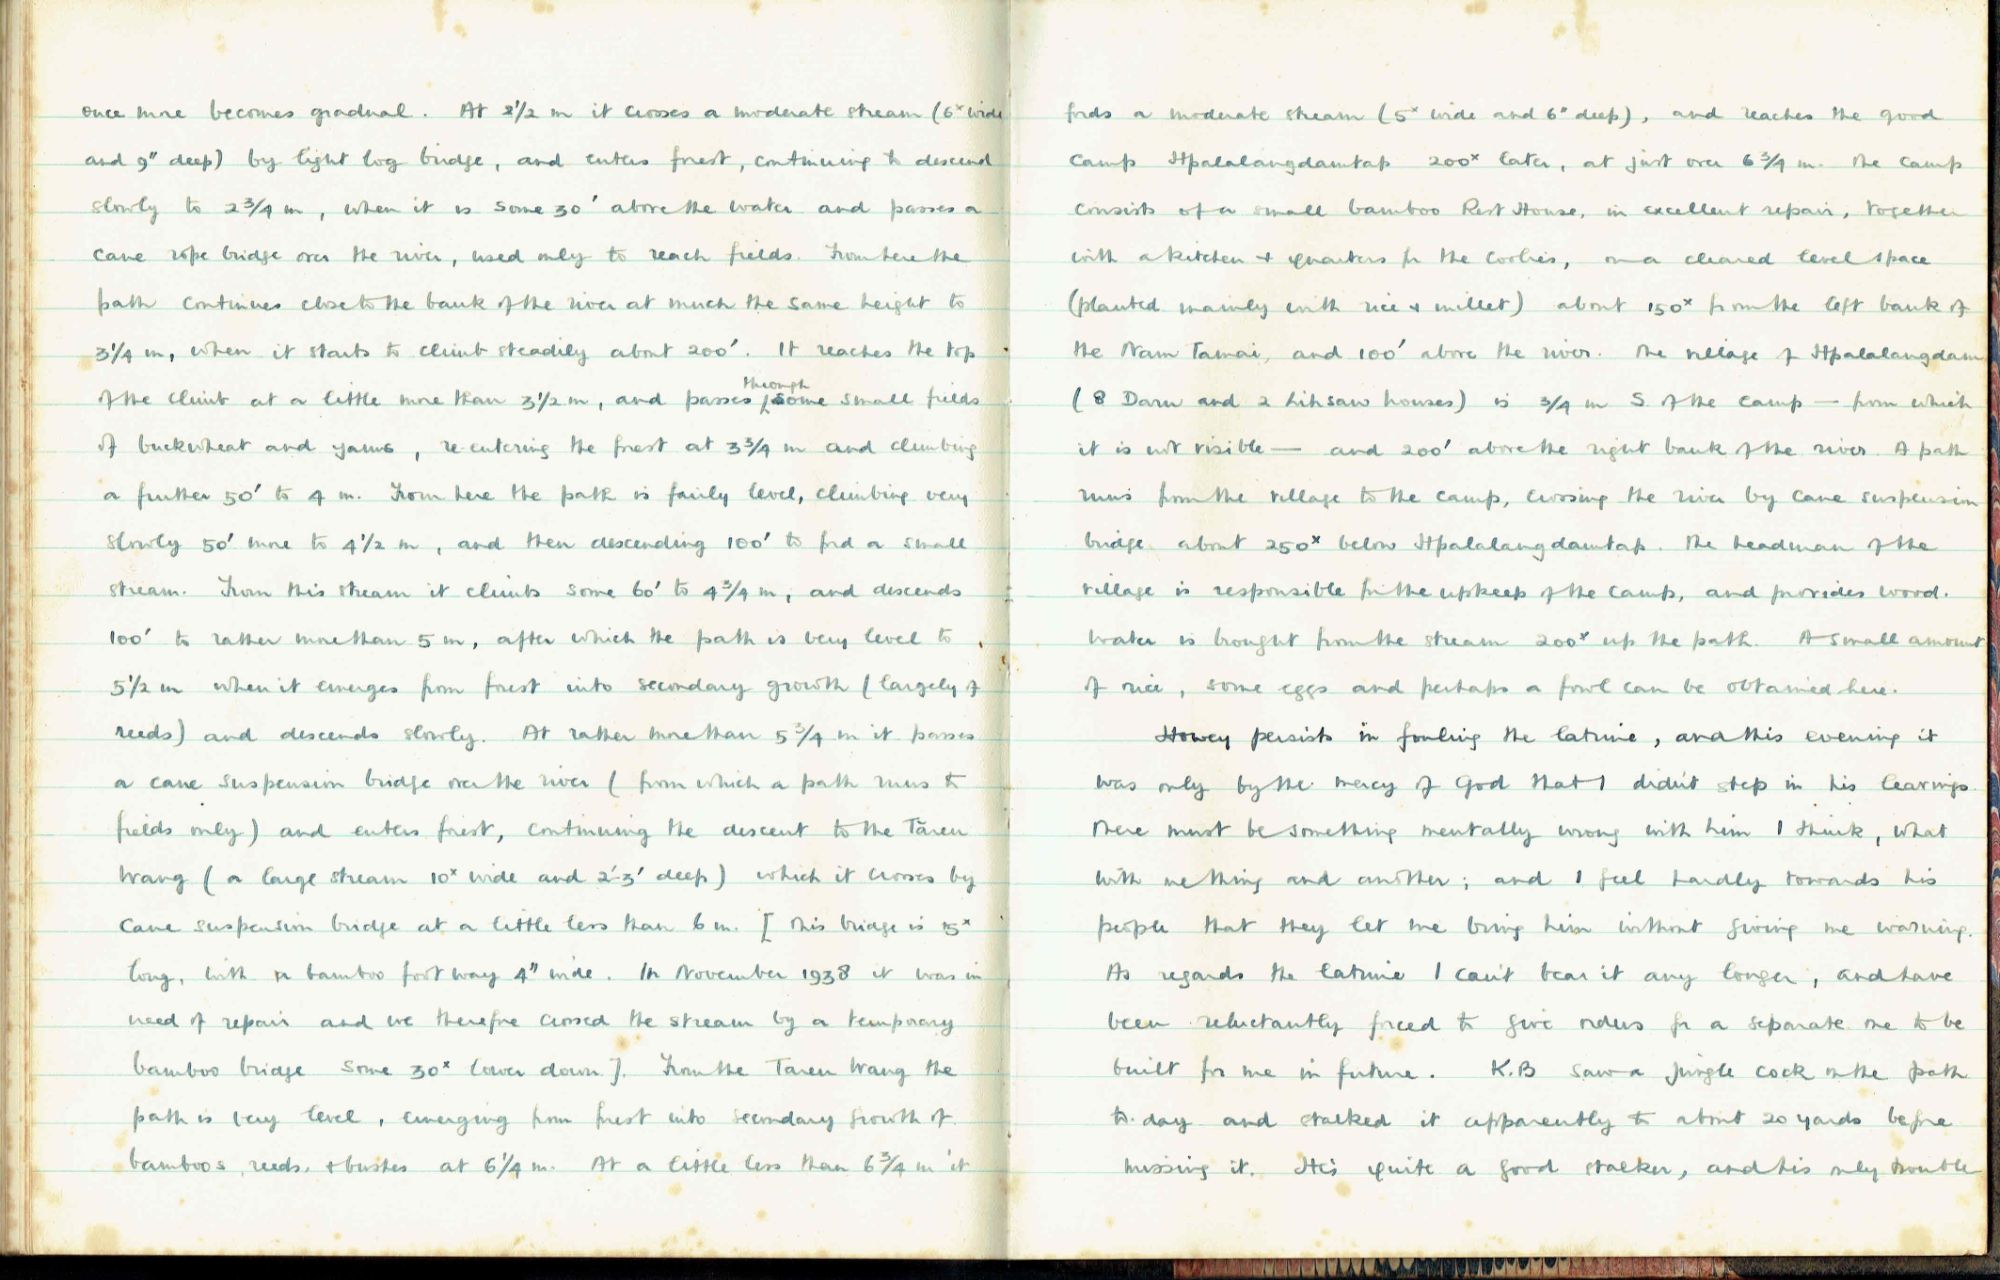 once more becomes gradual. At 2½ m it crosses a moderate stream (6ˣ wide
and 9" deep) by light log bridge, and enters forest, continuing to descend
slowly to 2¾ m, when it is some 30' above the water and passes a
cane rope bridge over the river, used only to reach fields. From here the
path continues close to the bank of the river at much the same height to
3¼ m, when it starts to climb steadily about 200'. It reaches the top
of the climb at a little more than 3½ m, and passes through some small fields
of buckwheat and yams, re-entering the forest at 3¾ m and climbing
a further 50' to 4 m. From here the path is fairly level, climbing very
slowly 50' more to 4½ m, and then descending 100' to ford a small
stream. From this stream it climbs some 60' to 4¾ m, and descends
100' to rather more than 5 m, after which the path is very level to
5½ m when it emerges from forest into secondary growth (largely of
reeds) and descends slowly. At rather more than 5¾ m it passes
a cane suspension bridge over the river (from which a path runs to
fields only) and enters forest, continuing the descent to the Tăren
Wang (a large stream 10ˣ wide and 2'-3' deep) which it crosses by
cane suspension bridge at a little less than 6 m. [This bridge is 15ˣ
long, with a bamboo foot way 4" wide. In November 1938 it was in
need of repair and we therefore crossed the stream by a temporary
bamboo bridge some 30ˣ lower down]. From the Taren Wang the
path is very level, emerging from forest into secondary growth of
bamboos, reeds, + bushes at 6¼ m. At a little less than 6¾ m it
fords a moderate stream (5ˣ wide and 6" deep), and reaches the good
camp Hpalalangdamtap 200ˣ later, at just over 6¾ m. The camp
consists of a small bamboo Rest House, in excellent repair, together
with a kitchen + quarters for the coolies, on a cleared level space
(planted mainly with rice + millet) about 150ˣ from the left bank of
the Nam Tamai, and 100' above the river. The village of Hpalalangdam
(8 Daru and 2 Lihsaw houses) is ¾ m S. of the camp — from which
it is not visible — and 200' above the right bank of the river. A path
runs from the village to the camp, crossing the river by cane suspension
bridge about 250ˣ below Hpalalangdamtap. The headman of the
village is responsible for the upkeep of the camp, and provides wood.
Water is brought from the stream 200ˣ up the path. A small amount
of rice, some eggs and perhaps a fowl can be obtained here.
Howey persists in fouling the latrine, and this evening it
was only by the mercy of God that I didn't step in his leavings.
There must be something mentally wrong with him I think, what
with one thing and another; and I feel hardly towards his
people that they let me bring him without giving me warning.
As regards the latrine I can't bear it any longer, and have
been reluctantly forced to give orders for a separate one to be
built for me in future. K.B saw a jungle cock on the path
to-day and stalked it apparently to about 20 yards before
missing it. He's quite a good stalker, and his only trouble